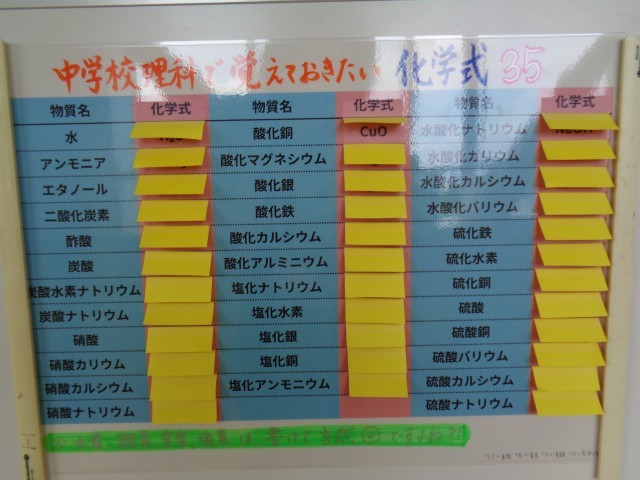 中学校理科で覚えておきたい 化学式 35
物質名 化学式 物質名 化学式 物質名 化学式
水 酸化銅 CuO 水酸化ナトリウム
アンモニア 酸化マグネシウム 水酸化カリウム
エタノール 酸化銀 水酸化カルシウム
二酸化炭素 酸化鉄 水酸化バリウム
酢酸 酸化カルシウム 硫化鉄
炭酸 酸化アルミニウム 硫化水素
炭酸水素ナトリウム 塩化ナトリウム 硫化銅
炭酸ナトリウム 塩化水素 硫酸
硝酸 塩化銀 硫酸銅
硝酸カリウム 塩化銅 硫酸バリウム
硝酸カルシウム 塩化アンモニウム 硫酸ナトリウム
硝酸ナトリウム